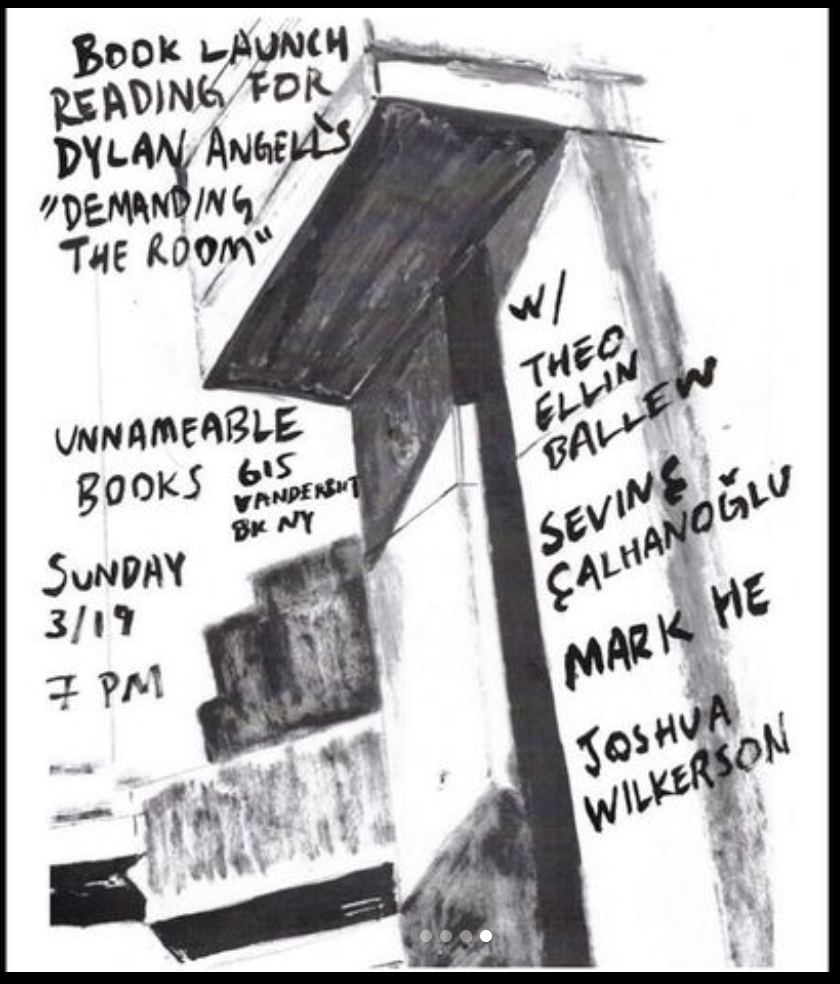 BOOK LAUNCH
READING FOR
DYLAN ANGELL'S
"DEMANDING
THE ROOM"
W/
THEO
ELLIN
BALLEW
SEVINÇ
ÇALHANOĞLU
MARK HE
JOSHUA
WILKERSON
UNNAMEABLE
BOOKS
615
VANDERBILT
BK NY
SUNDAY
3/19
7 PM